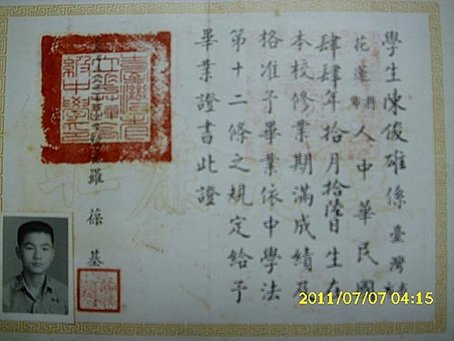 學生陳俊雄係臺灣省
花蓮縣市人中華民國
肆肆年拾月拾陸日生在
本校修業期滿成績及
格准予畢業依中學法
第十二條之規定給予
畢業證書此證
羅葆基
2011/07/07 04:15